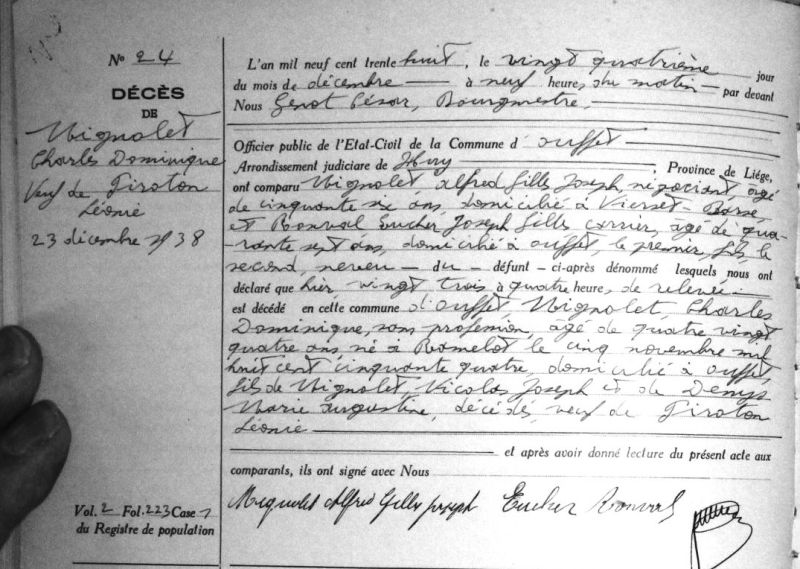 No 24
DÉCÈS
DE
Mignolet
Charles Dominique
Veuf de Firoton
Léonie
23 décembre 1938
Vol. 2 Fol. 223 Case 1
du Registre de population
L'an mil neuf cent trente huit, le vingt quatrième jour
du mois de décembre à neuf heures du matin par devant
Nous Genot César, Bourgmestre
Officier public de l'Etat-Civil de la Commune d'Ouffet
Arrondissement judiciare de Huy ; Province de Liége,
ont comparu Mignolet, Alfred Gilles Joseph, négociant, âgé
de cinquante six ans, domicilié à Vierset-Barse,
et Ronval, Eucher Joseph Gilles carrier, âgé de qua-
-rante sept ans, domicilié à Ouffet, le premier, fils, le
second, neveu — du — défunt — ci-après dénommé lesquels nous ont
déclaré que hier, vingt trois à quatre heures, de relevée
est décédé en cette commune d'Ouffet Mignolet, Charles
Dominique, sans profession, âgé de quatre vingt
quatre ans, né à Ramelot, le cinq novembre mil
huit cent cinquante quatre, domicilié à Ouffet,
fils de Mignolet, Nicolas Joseph et de Denys
Marie Augustine, décédés, veuf de Firoton
Léonie
et après avoir donné lecture du présent acte aux
comparants, ils ont signé avec Nous
Mignolet Alfred Gilles Joseph Eucher Ronval